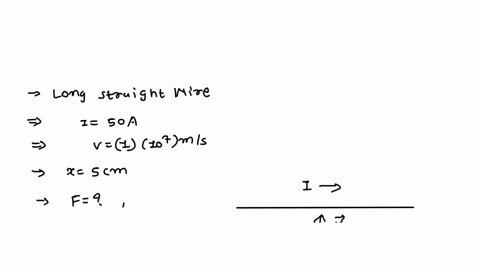 → Long straight wire
⇒ I = 50A
⇒ v = (1) (10⁷) m/s
→ x = 5 cm
→ F = ? ,
I →